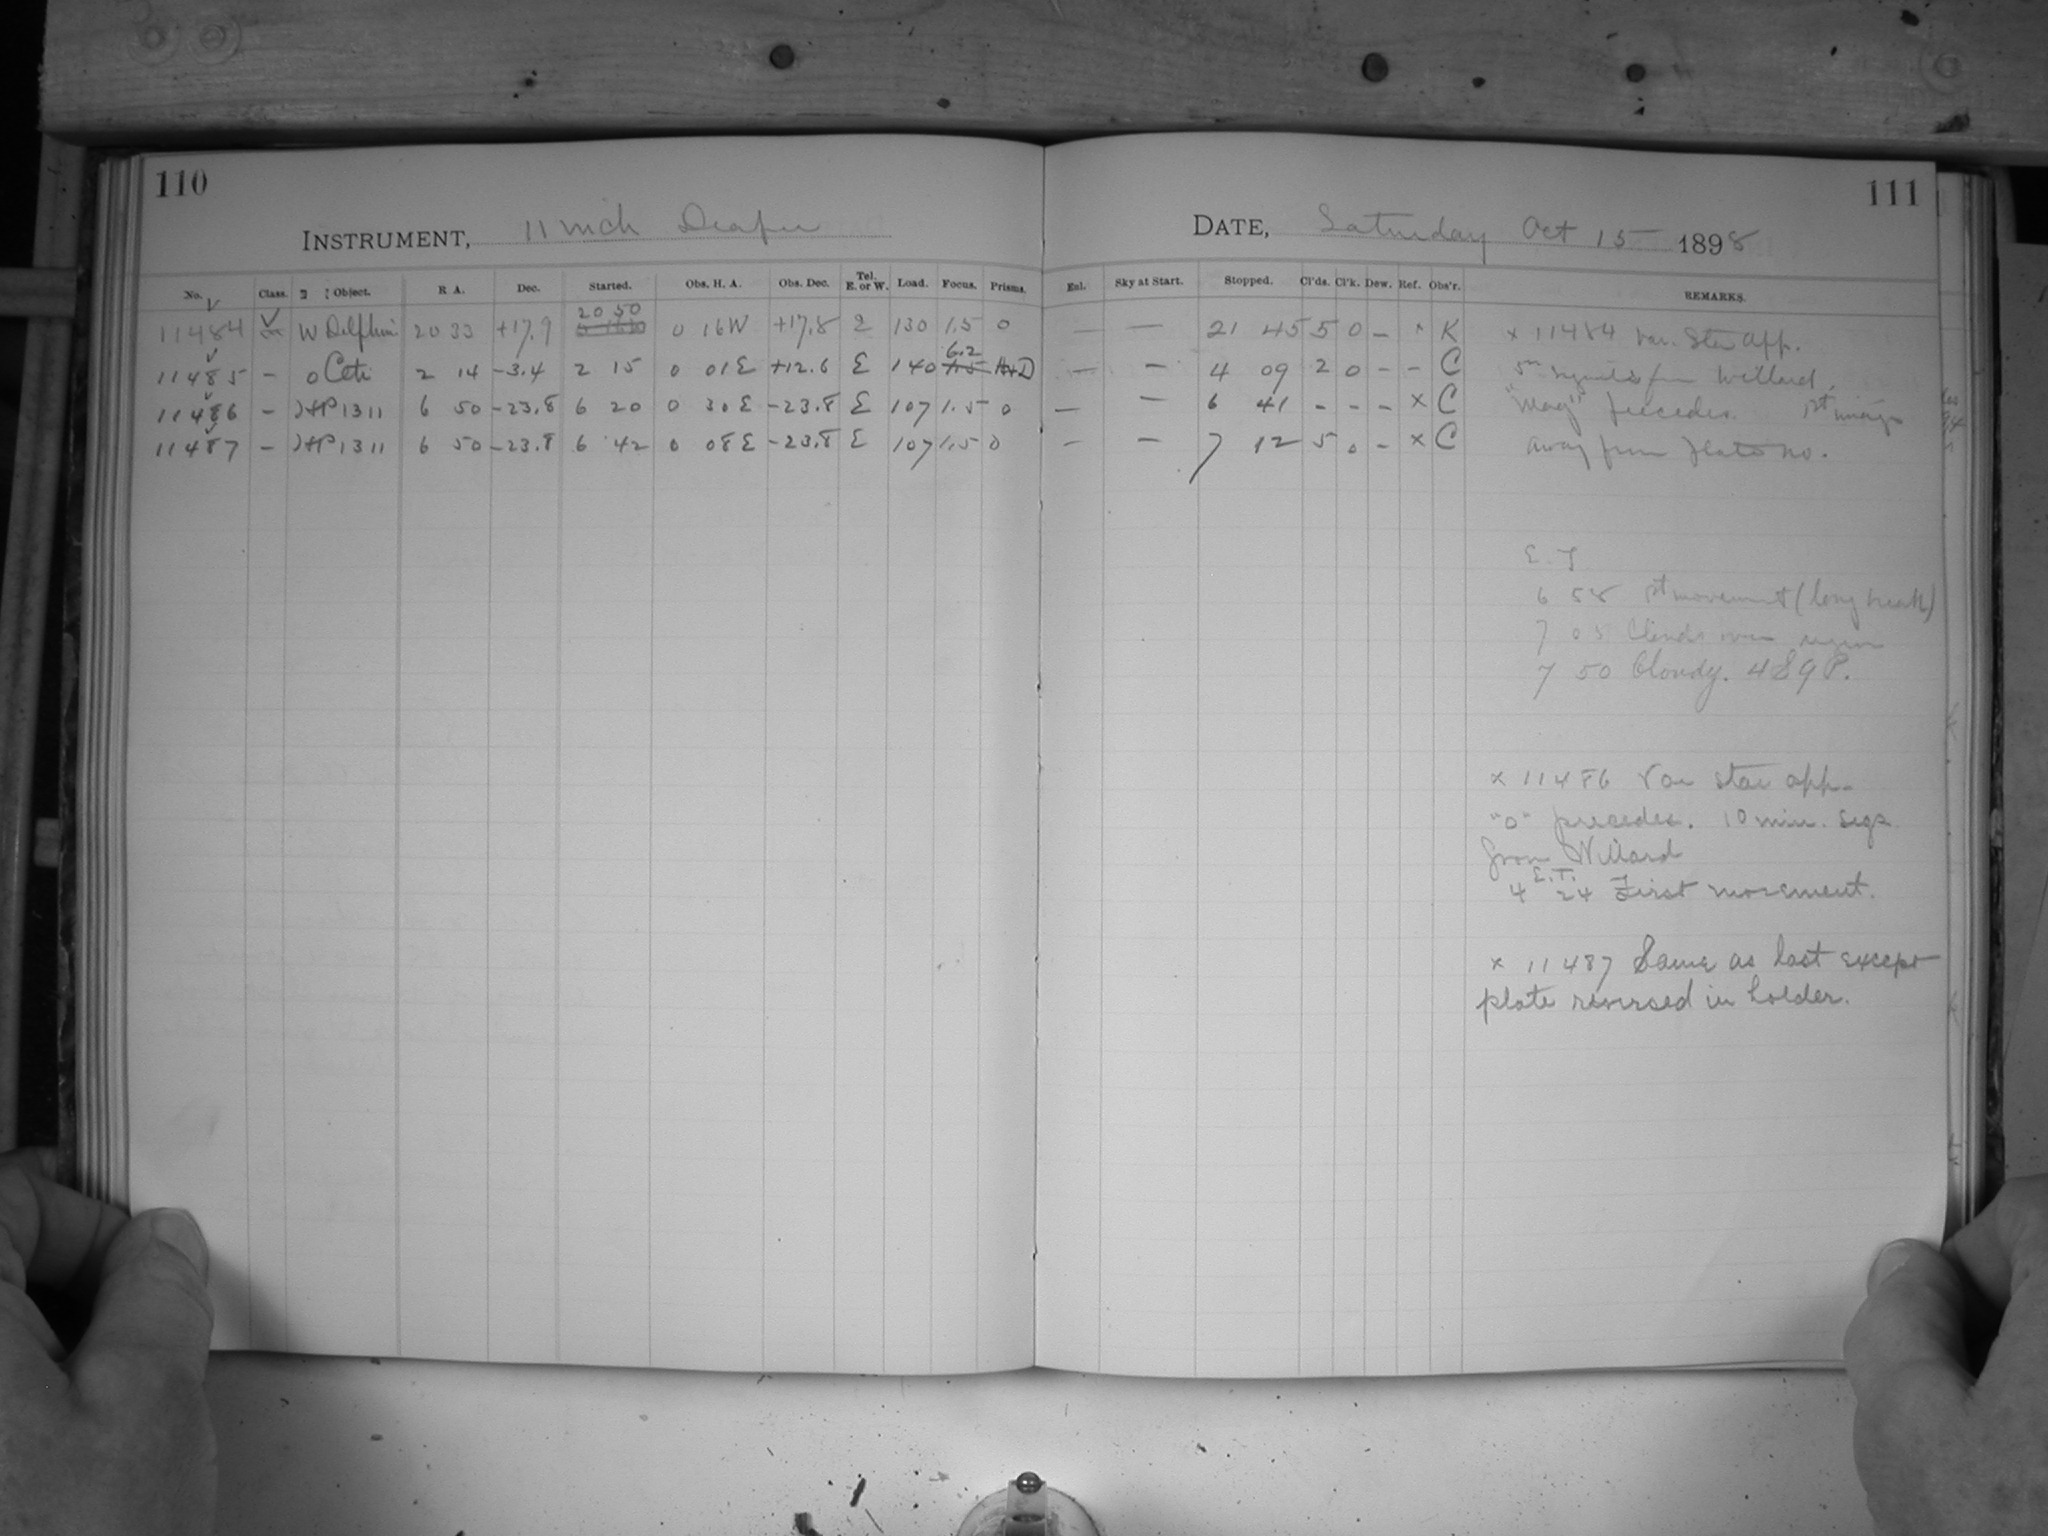 110
111
INSTRUMENT, 11 inch Draper
DATE, Saturday Oct 15 1898
No. Class. Object. R A. Dec. Started. Obs. H. A. Obs. Dec. Tel. E. or W. Load. Focus. Prisms. Enl. Sky at Start. Stopped. Cl'ds. Cl'k. Dew. Ref. Obs'r. REMARKS.
20 50
11484 W Delphini 20 33 +17.9 0 16W +17.8 E 130 1.5 0 — — 21 45 5 0 – × K × 11484 Var. Star app.
6.2
11485 – o Ceti 2 14 -3.4 2 15 0 01E +12.6 E 140 1.5 — — 4 09 2 0 – – C 5m signals from Willard.
11486 – HP 1311 6 50 -23.8 6 20 0 30E -23.8 E 107 1.5 0 — — 6 41 – – – × C precedes. 1st image
11487 – HP 1311 6 50 -23.8 6 42 0 08E -23.8 E 107 1.5 0 – — 7 12 5 0 – × C away from plate no.
E. T
6 58 1st movement (long break)
7 05 Clouds over region
7 50 Cloudy. 4S9P.
× 11486 Var star app.
"0" precedes. 10 min. sigs
from Willard
E.T.
4 24 First movement.
× 11487 Same as last except
plate reversed in holder.